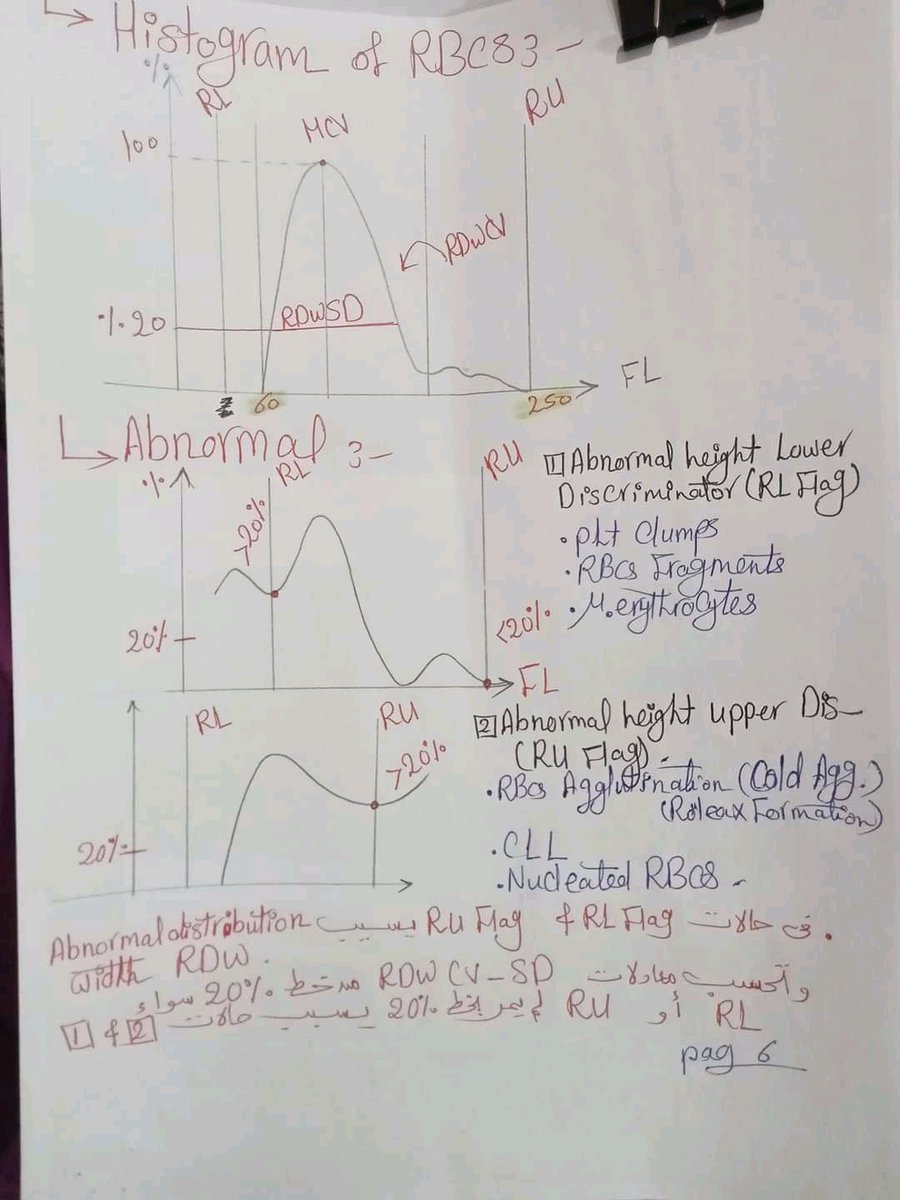 Histogram of RBCs :-
%
RL
MCV
RU
100
RDWCV
%20
RDWSD
FL
60
250
Abnormal :-
%
RL
RU
>20%
20%
<20%
FL
1 Abnormal height Lower
Discriminator (RL Flag)
• plt Clumps
• RBCs Fragments
• M.erythrocytes
RL
RU
>20%
20%
2 Abnormal height upper Dis-
(RU Flag) -
• RBCs Agglutination (Cold Agg.)
(Roleax Formation)
• CLL
• Nucleated RBCs -
• فى حالات RL Flag & RU Flag يسبب Abnormal distribution
width RDW .
و تحسب معادلات RDW CV-SD من خط 20% سواء
RL أو RU لم يمر بخط 20% يسبب حالات 1 & 2
pag 6